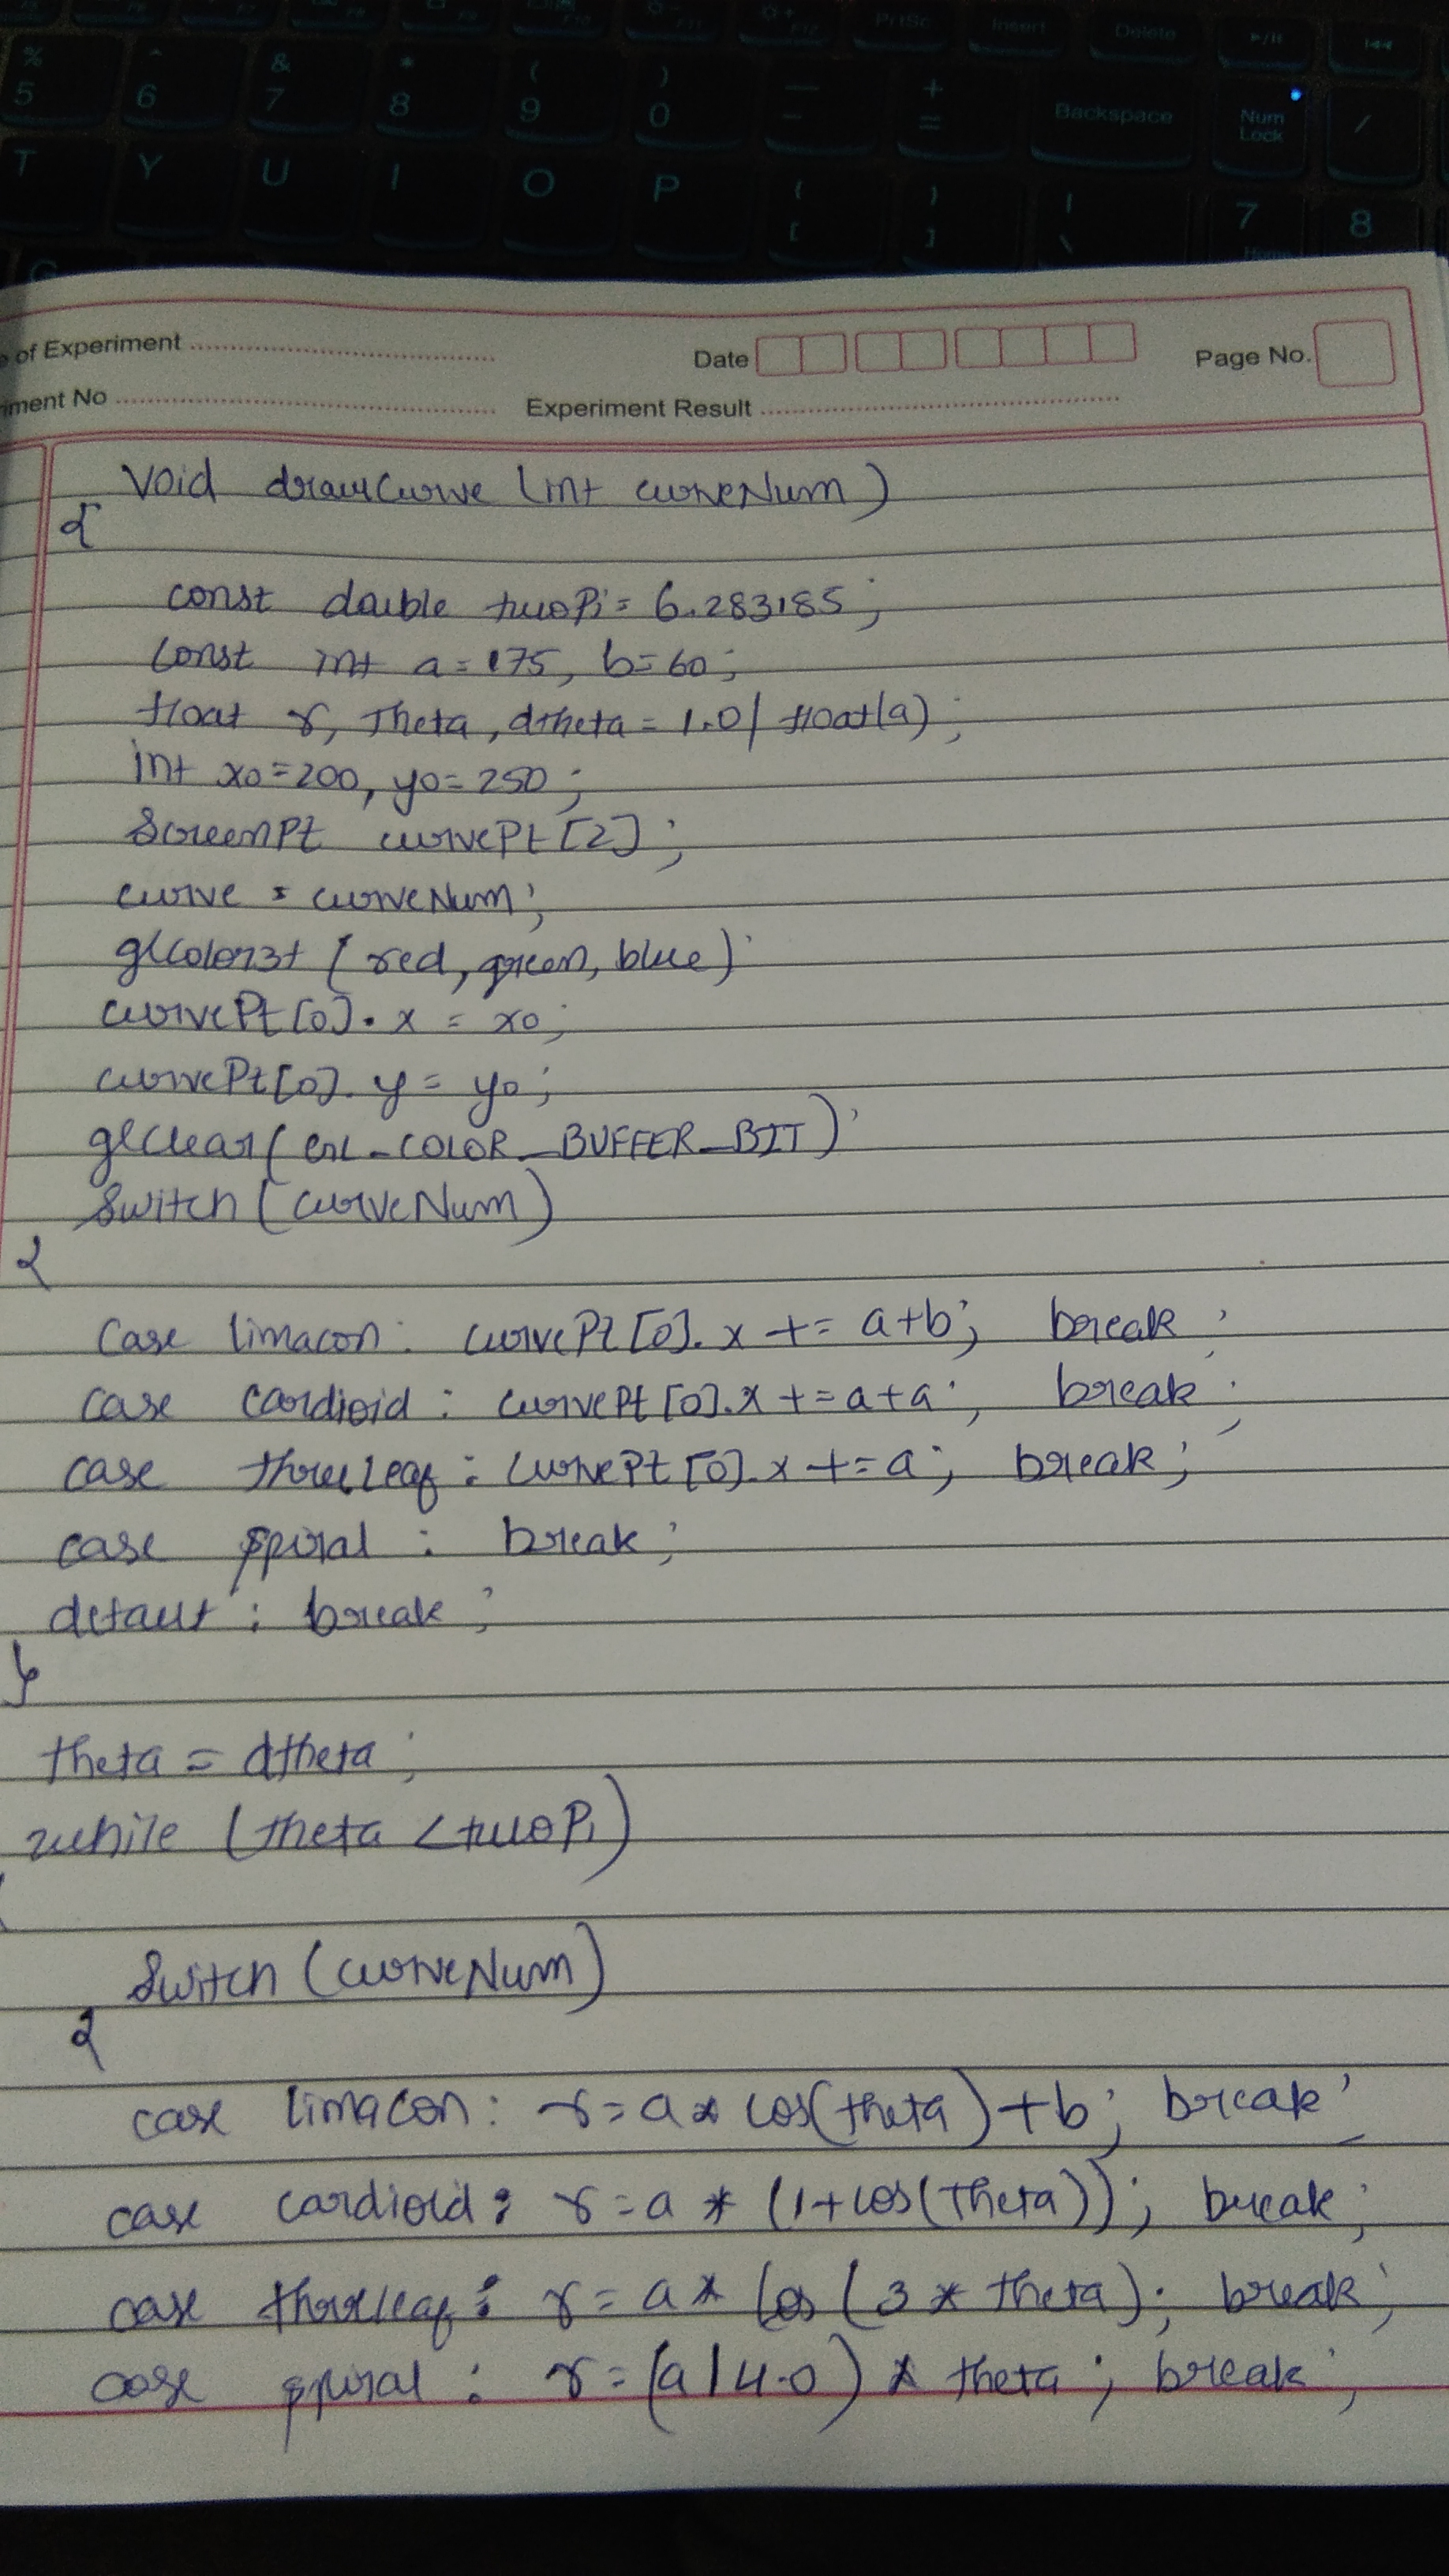 % ^ & * ( ) — +
5 6 7 8 9 0 - = Backspace Num Lock /
PrtSc Insert Delete
T Y U I O P { [ } ] | \ 7 8
G
e of Experiment
Date
Page No.
iment No
Experiment Result
Void drawCurve (int curveNum)
{
const double twoPi = 6.283185;
const int a = 175, b = 60;
float r, Theta, dtheta = 1.0/ float(a);
int x0 = 200, y0 = 250;
ScreenPt curvePt [2];
curve = curveNum;
glColor3f (red, green, blue);
curvePt[0]. x = x0;
curvePt[0]. y = y0;
glClear( GL_COLOR_BUFFER_BIT);
Switch (curveNum)
{
Case limacon: curvePt [0]. x += a+b; break;
case cardioid: curvePt [0].x += a+a; break;
case threeLeaf: curvePt [0].x += a; break;
case spiral : break;
default : break;
}
theta = dtheta;
while (theta < twoPi)
{
Switch (curveNum)
{
case limacon: r = a * cos(theta) + b; break;
case cardioid: r = a * (1+cos(Theta)); break;
case threeleaf: r = a * cos (3 * theta); break;
case spiral : r = (a/4.0) * theta; break;